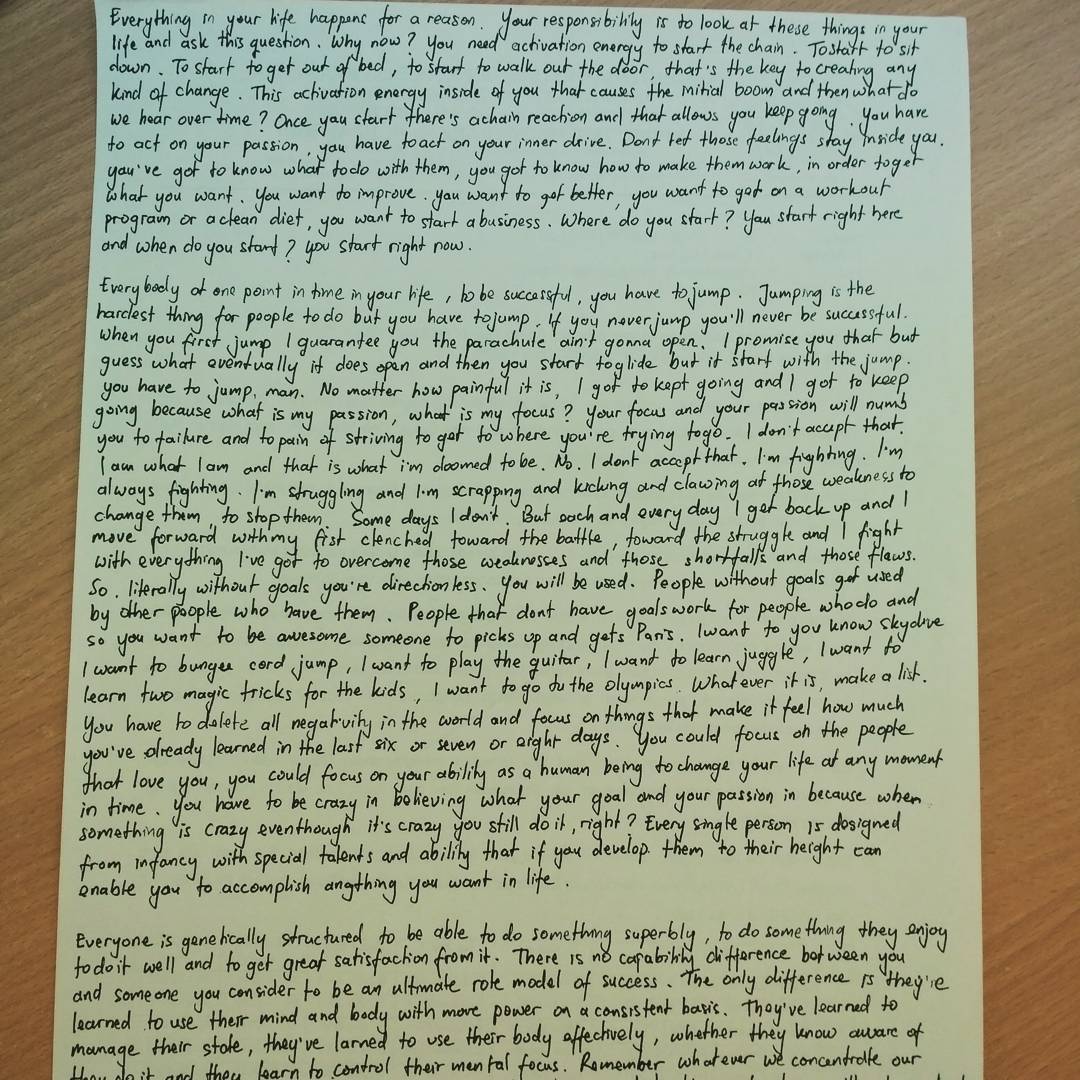 Everything in your life happens for a reason. Your responsibility is to look at these things in your
life and ask this question. Why now? You need activation energy to start the chain. To start to sit
down. To start to get out of bed, to start to walk out the door, that's the key to creating any
kind of change. This activation energy inside of you that causes the initial boom and then what do
we hear over time? Once you start there's a chain reaction and that allows you keep going. You have
to act on your passion, you have to act on your inner drive. Dont let those feelings stay inside you.
you've got to know what to do with them, you got to know how to make them work, in order to get
what you want. You want to improve. you want to get better, you want to get on a workout
program or a clean diet, you want to start a business. Where do you start? You start right here
and when do you start? you start right now.
Everybody at one point in time in your life, to be successful, you have to jump. Jumping is the
hardest thing for people to do but you have to jump. If you never jump you'll never be successful.
When you first jump I guarantee you the parachute ain't gonna open. I promise you that but
guess what eventually it does open and then you start to glide but it start with the jump.
you have to jump, man. No matter how painful it is, I got to kept going and I got to keep
going because what is my passion, what is my focus? Your focus and your passion will numb
you to failure and to pain of striving to get to where you're trying to go. I don't accept that.
I am what I am and that is what i'm doomed to be. No. I dont accept that. I'm fighting. I'm
always fighting. I'm struggling and I'm scrapping and kicking and clawing at those weakness to
change them, to stop them. Some days I don't. But each and every day I get back up and I
move forward with my fist clenched toward the battle, toward the struggle and I fight
with everything I've got to overcome those weaknesses and those shortfalls and those flaws.
So, literally without goals you're directionless. You will be used. People without goals get used
by other people who have them. People that dont have goals work for people who do and
so you want to be awesome someone to picks up and gets Paris. I want to you know skydive
I want to bungee cord jump, I want to play the guitar, I want to learn juggle, I want to
learn two magic tricks for the kids, I want to go to the olympics. Whatever it is, make a list.
You have to delete all negativity in the world and focus on things that make it feel how much
you've already learned in the last six or seven or eight days. You could focus on the people
that love you, you could focus on your ability as a human being to change your life at any moment
in time. you have to be crazy in believing what your goal and your passion in because when
something is crazy eventhough it's crazy you still do it, right? Every single person is designed
from infancy with special talents and ability that if you develop them to their height can
enable you to accomplish angthing you want in life.
Everyone is genetically structured to be able to do something superbly, to do something they enjoy
to do it well and to get great satisfaction from it. There is no capability difference between you
and someone you consider to be an ultimate role model of success. The only difference is they're
learned to use their mind and body with more power on a consistent basis. They've learned to
manage their state, they've larned to use their body effectively, whether they know aware of
they do it and they learn to control their mental focus. Remember whatever we concentrate our